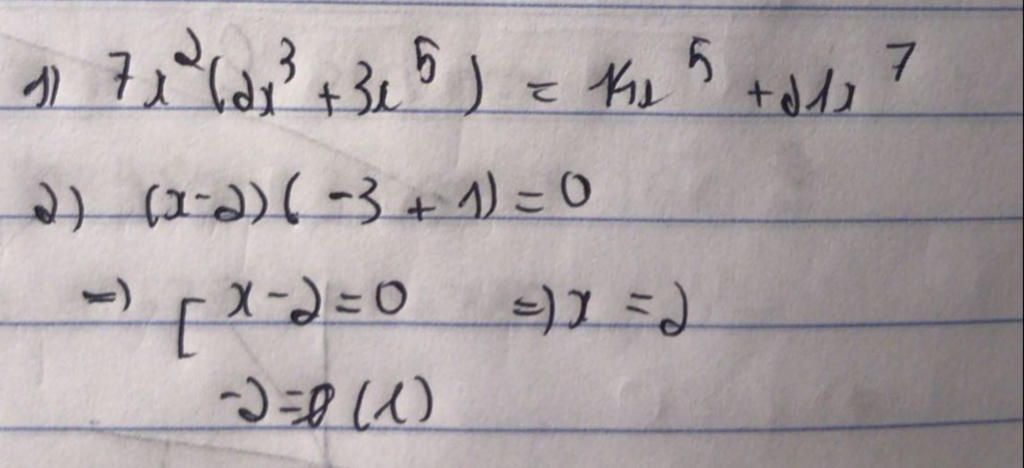 1) 7x²(2x³ + 3x⁵) = 14x⁵ + 21x⁷
2) (x-2)(-3 + 1) = 0
=) [ x-2=0 =) x = 2
-2=0 (l)